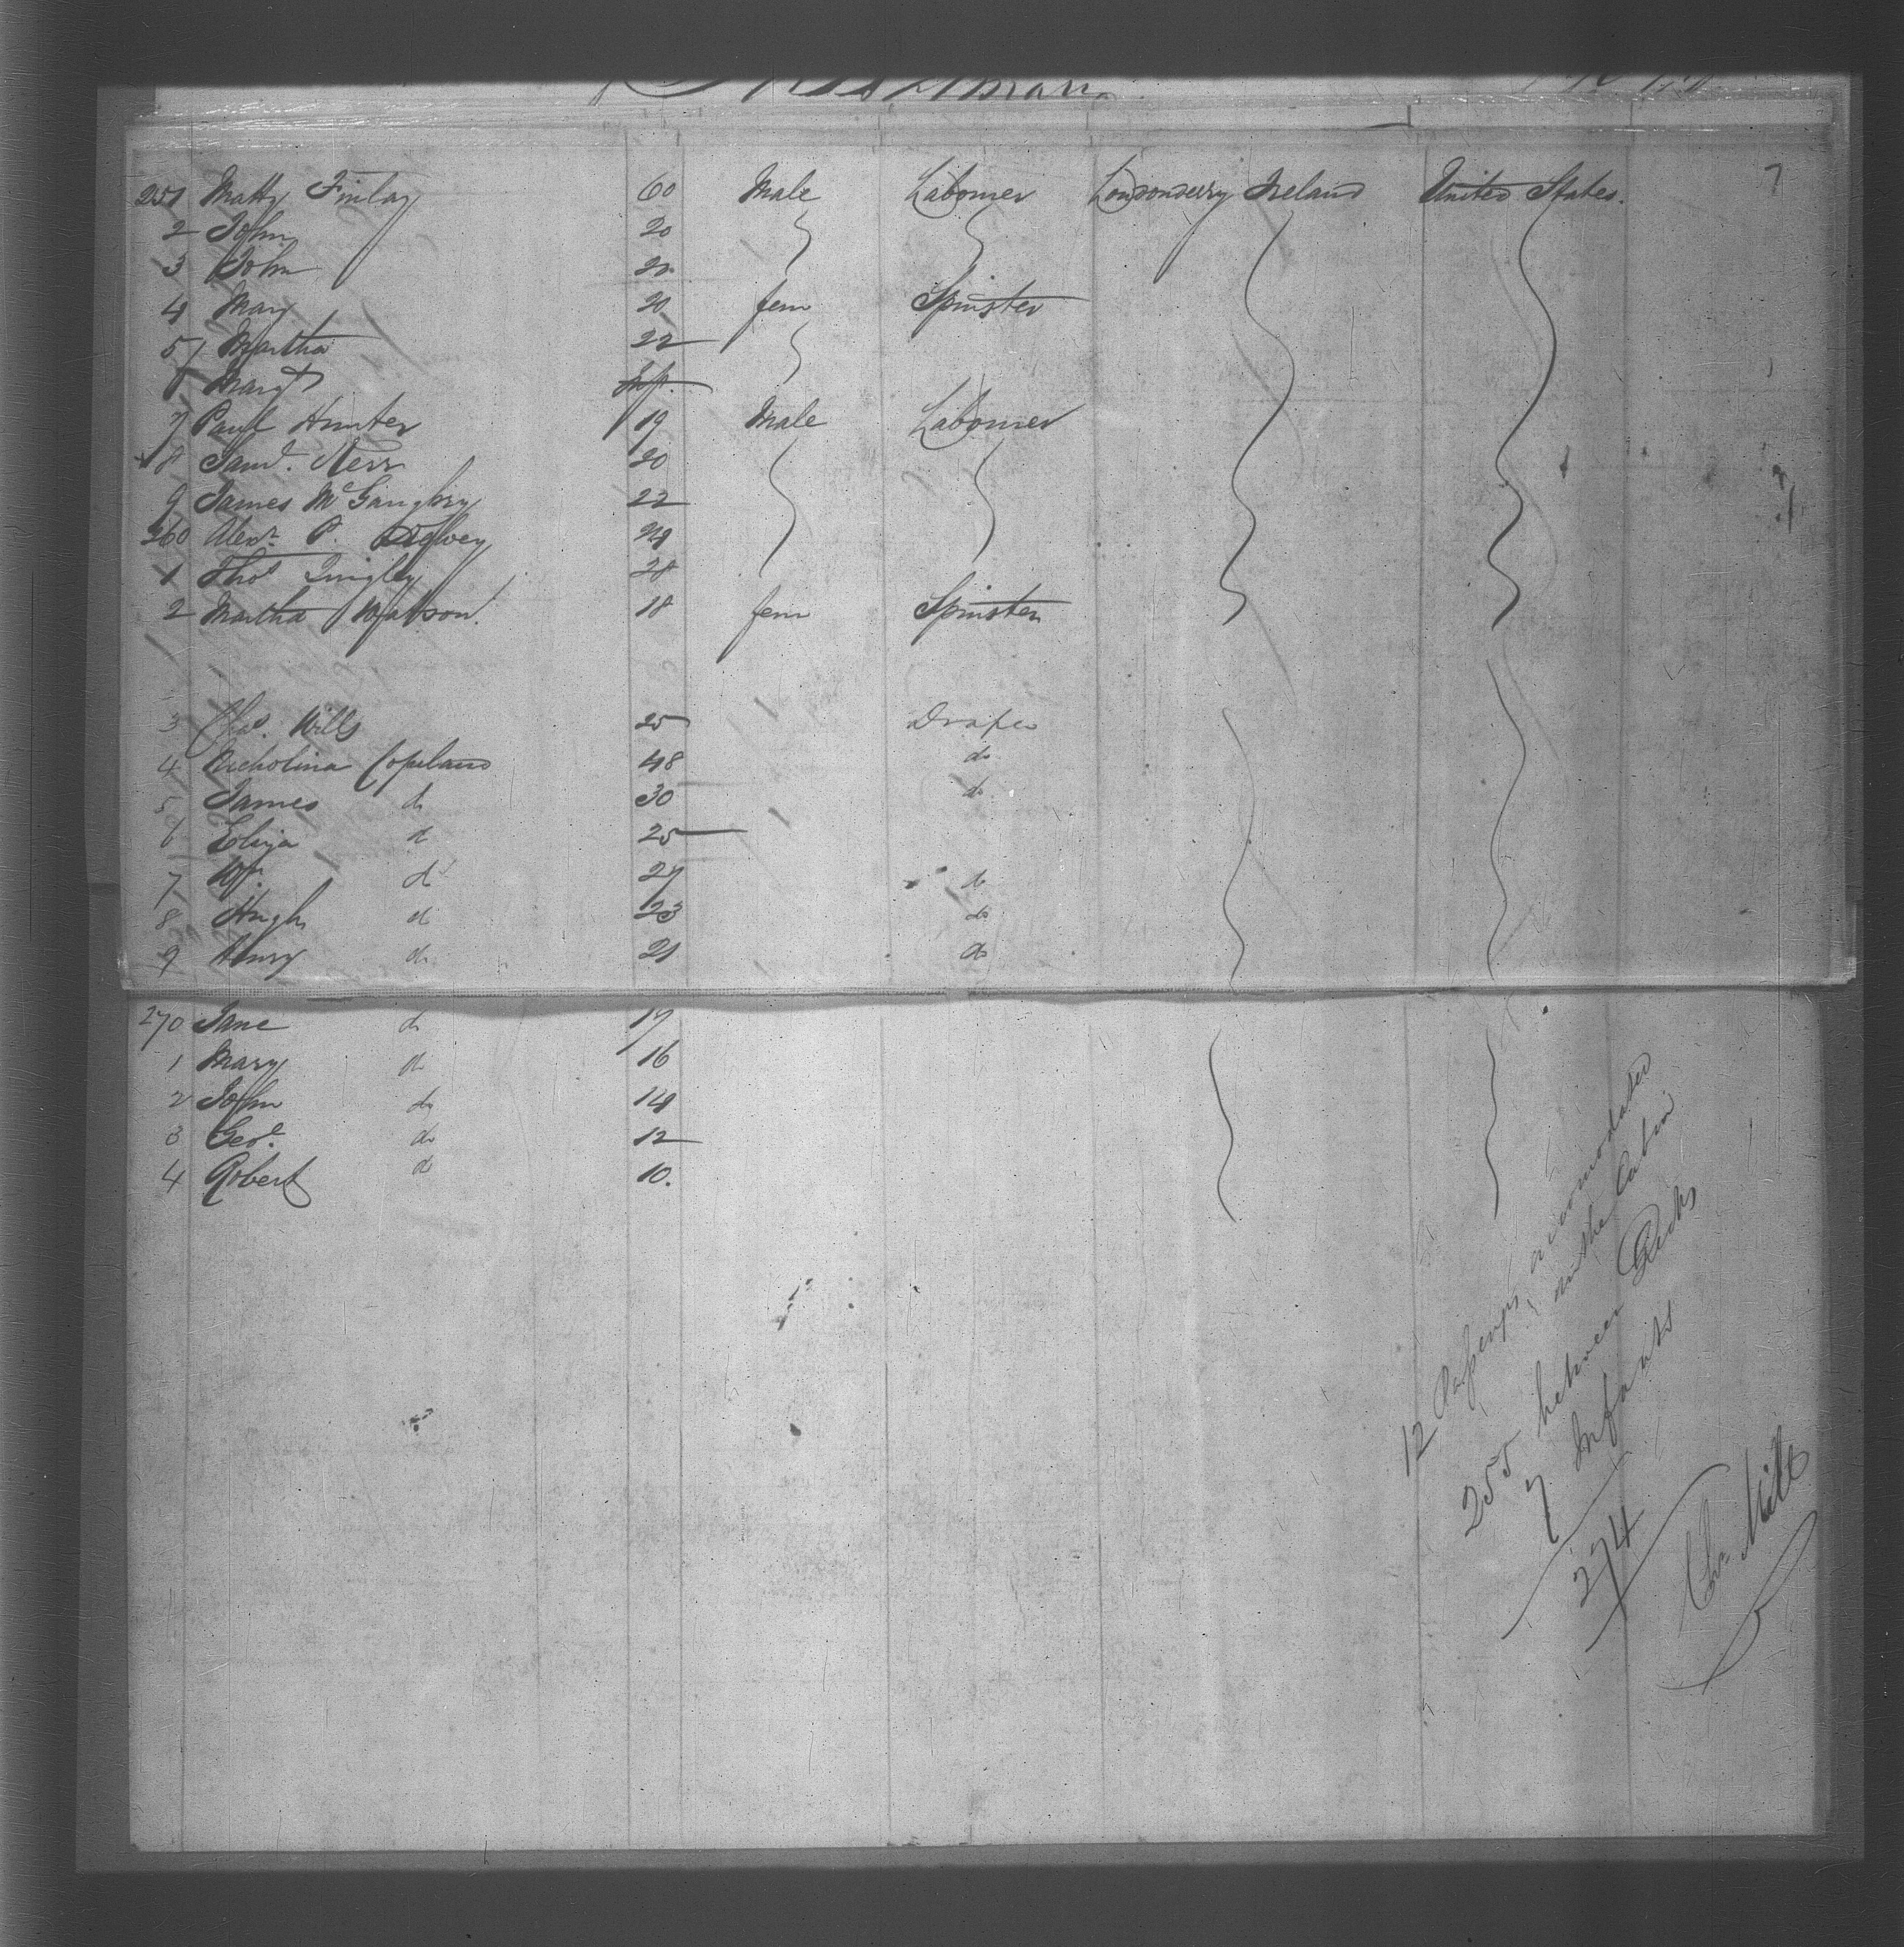 251 Matty Finlay 60 Male Labourer Londonderry Ireland United States.
2 John 20
3 John
4 Mary 20 fem Spinster
5 Martha 22
6 Margt Inf.
7 Paul Hunter 19 Male Labourer
8 Saml. Kerr 20
9 James 22
260 Alexr. P. 24
1 Thos Quigley 28
2 Martha Watson. 18 fem Spinster
3 Chs. Wills 25 Draper
4 Nicholina Copeland 48 do
5 James do 30 do
6 Eliza do 25
7 Wm. do 27 do
8 Hugh do 23 do
9 Henry do 21 do
270 Jane do 17
1 Mary do 16
2 John do 14
3 Geoe. do 12
4 Robert do 10.
12 Passengrs accomodated
in the Cabin
255 between Decks
7 Infants
274